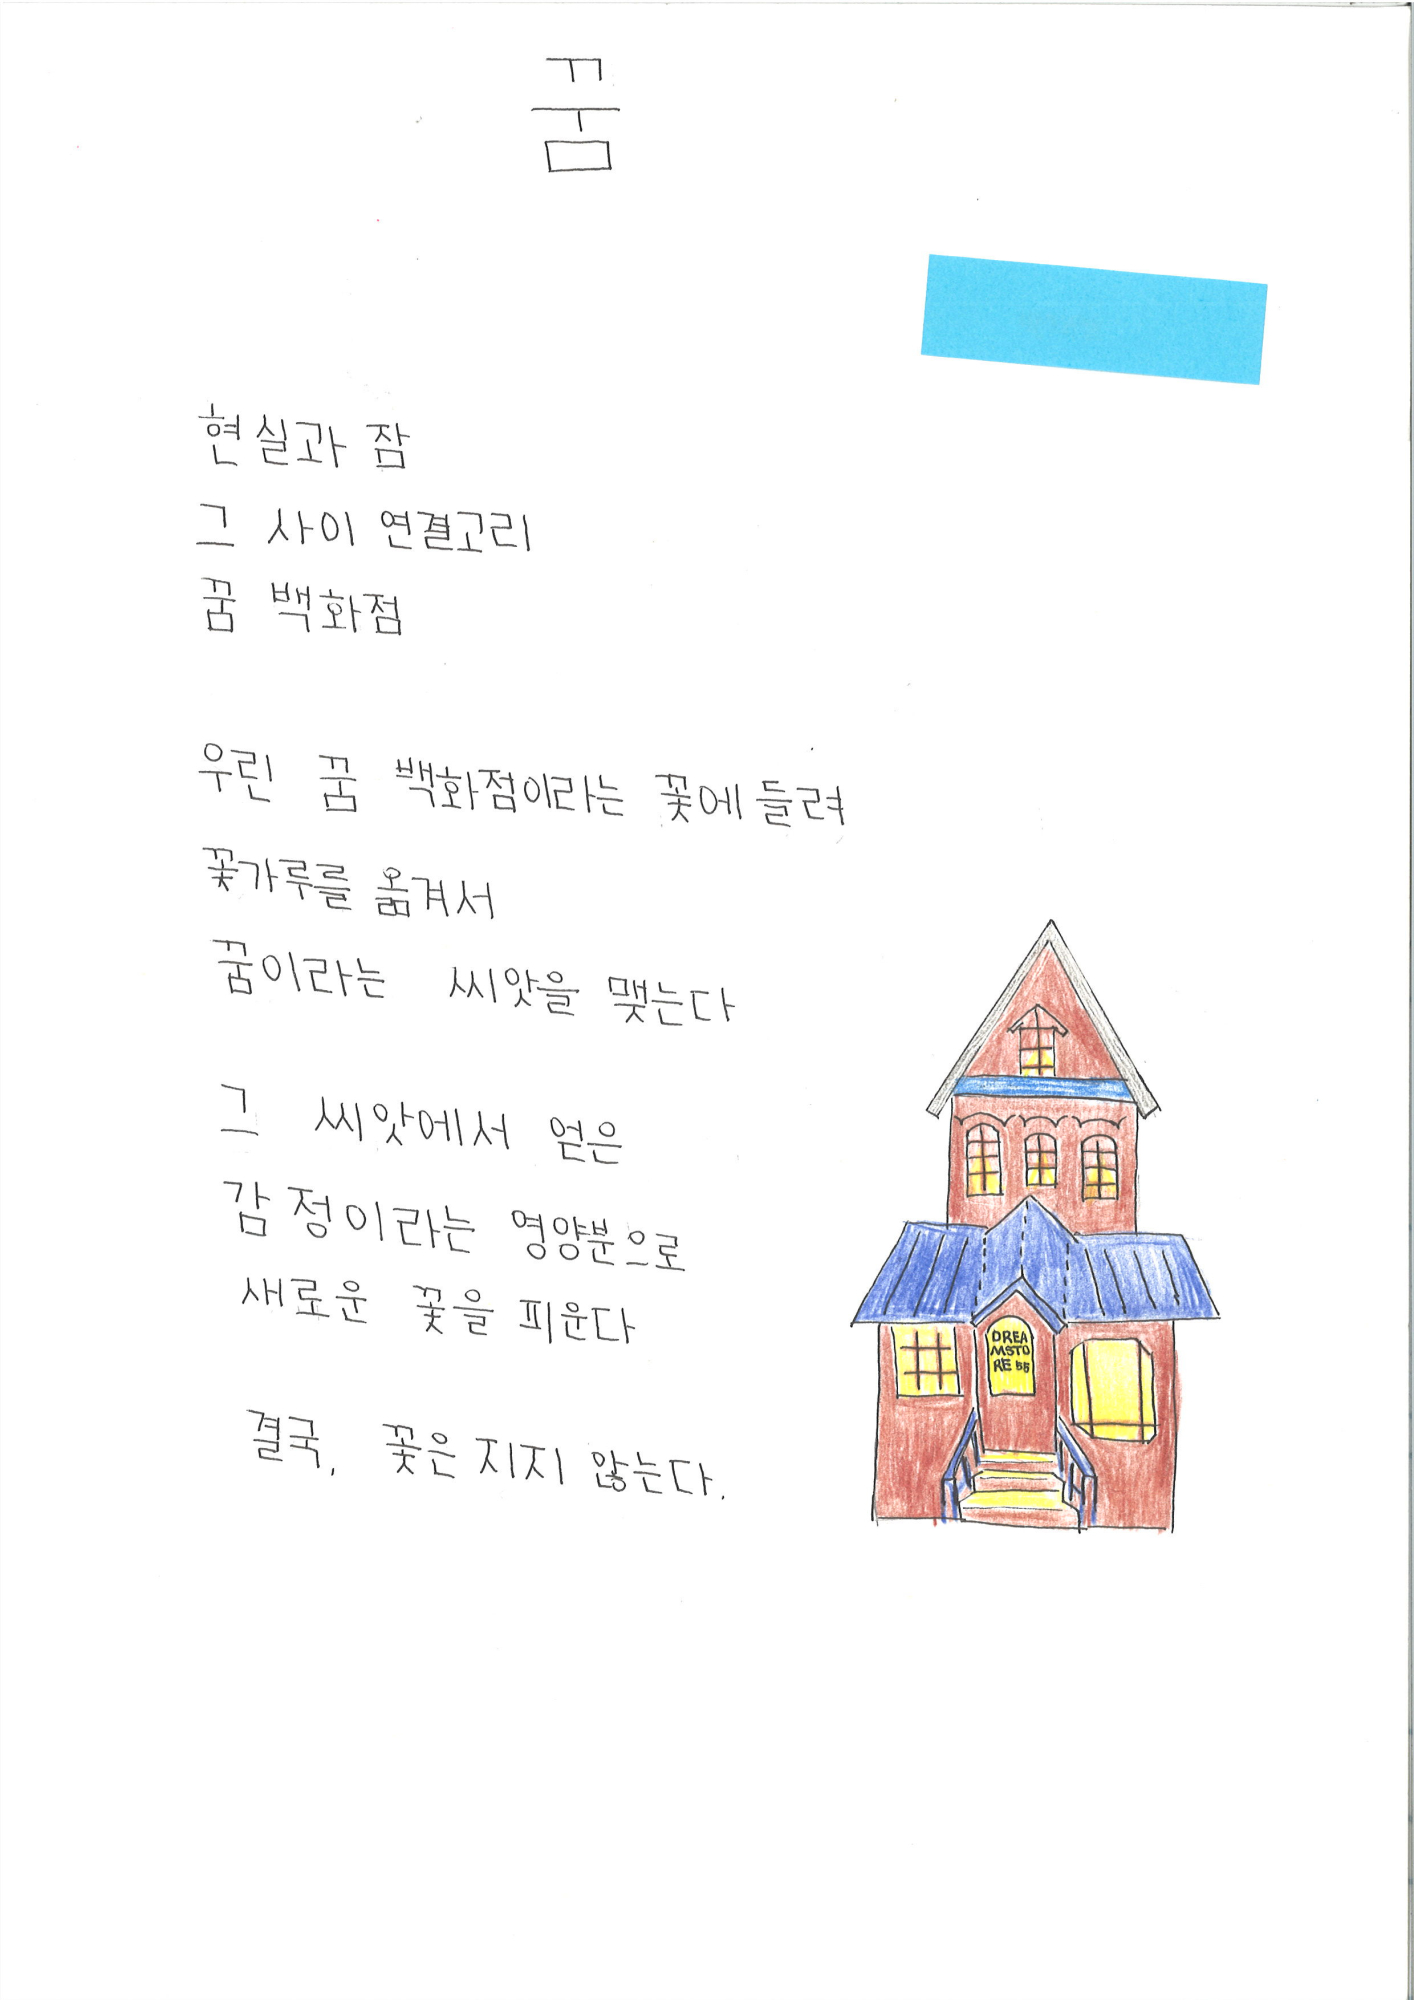 꿈
현실과 잠
그 사이 연결고리
꿈 백화점
우린 꿈 백화점이라는 꽃에 들려
꽃가루를 옮겨서
꿈이라는 씨앗을 맺는다
그 씨앗에서 얻은
감정이라는 영양분으로
새로운 꽃을 피운다
결국, 꽃은 지지 않는다.
DREA
MSTO
RE